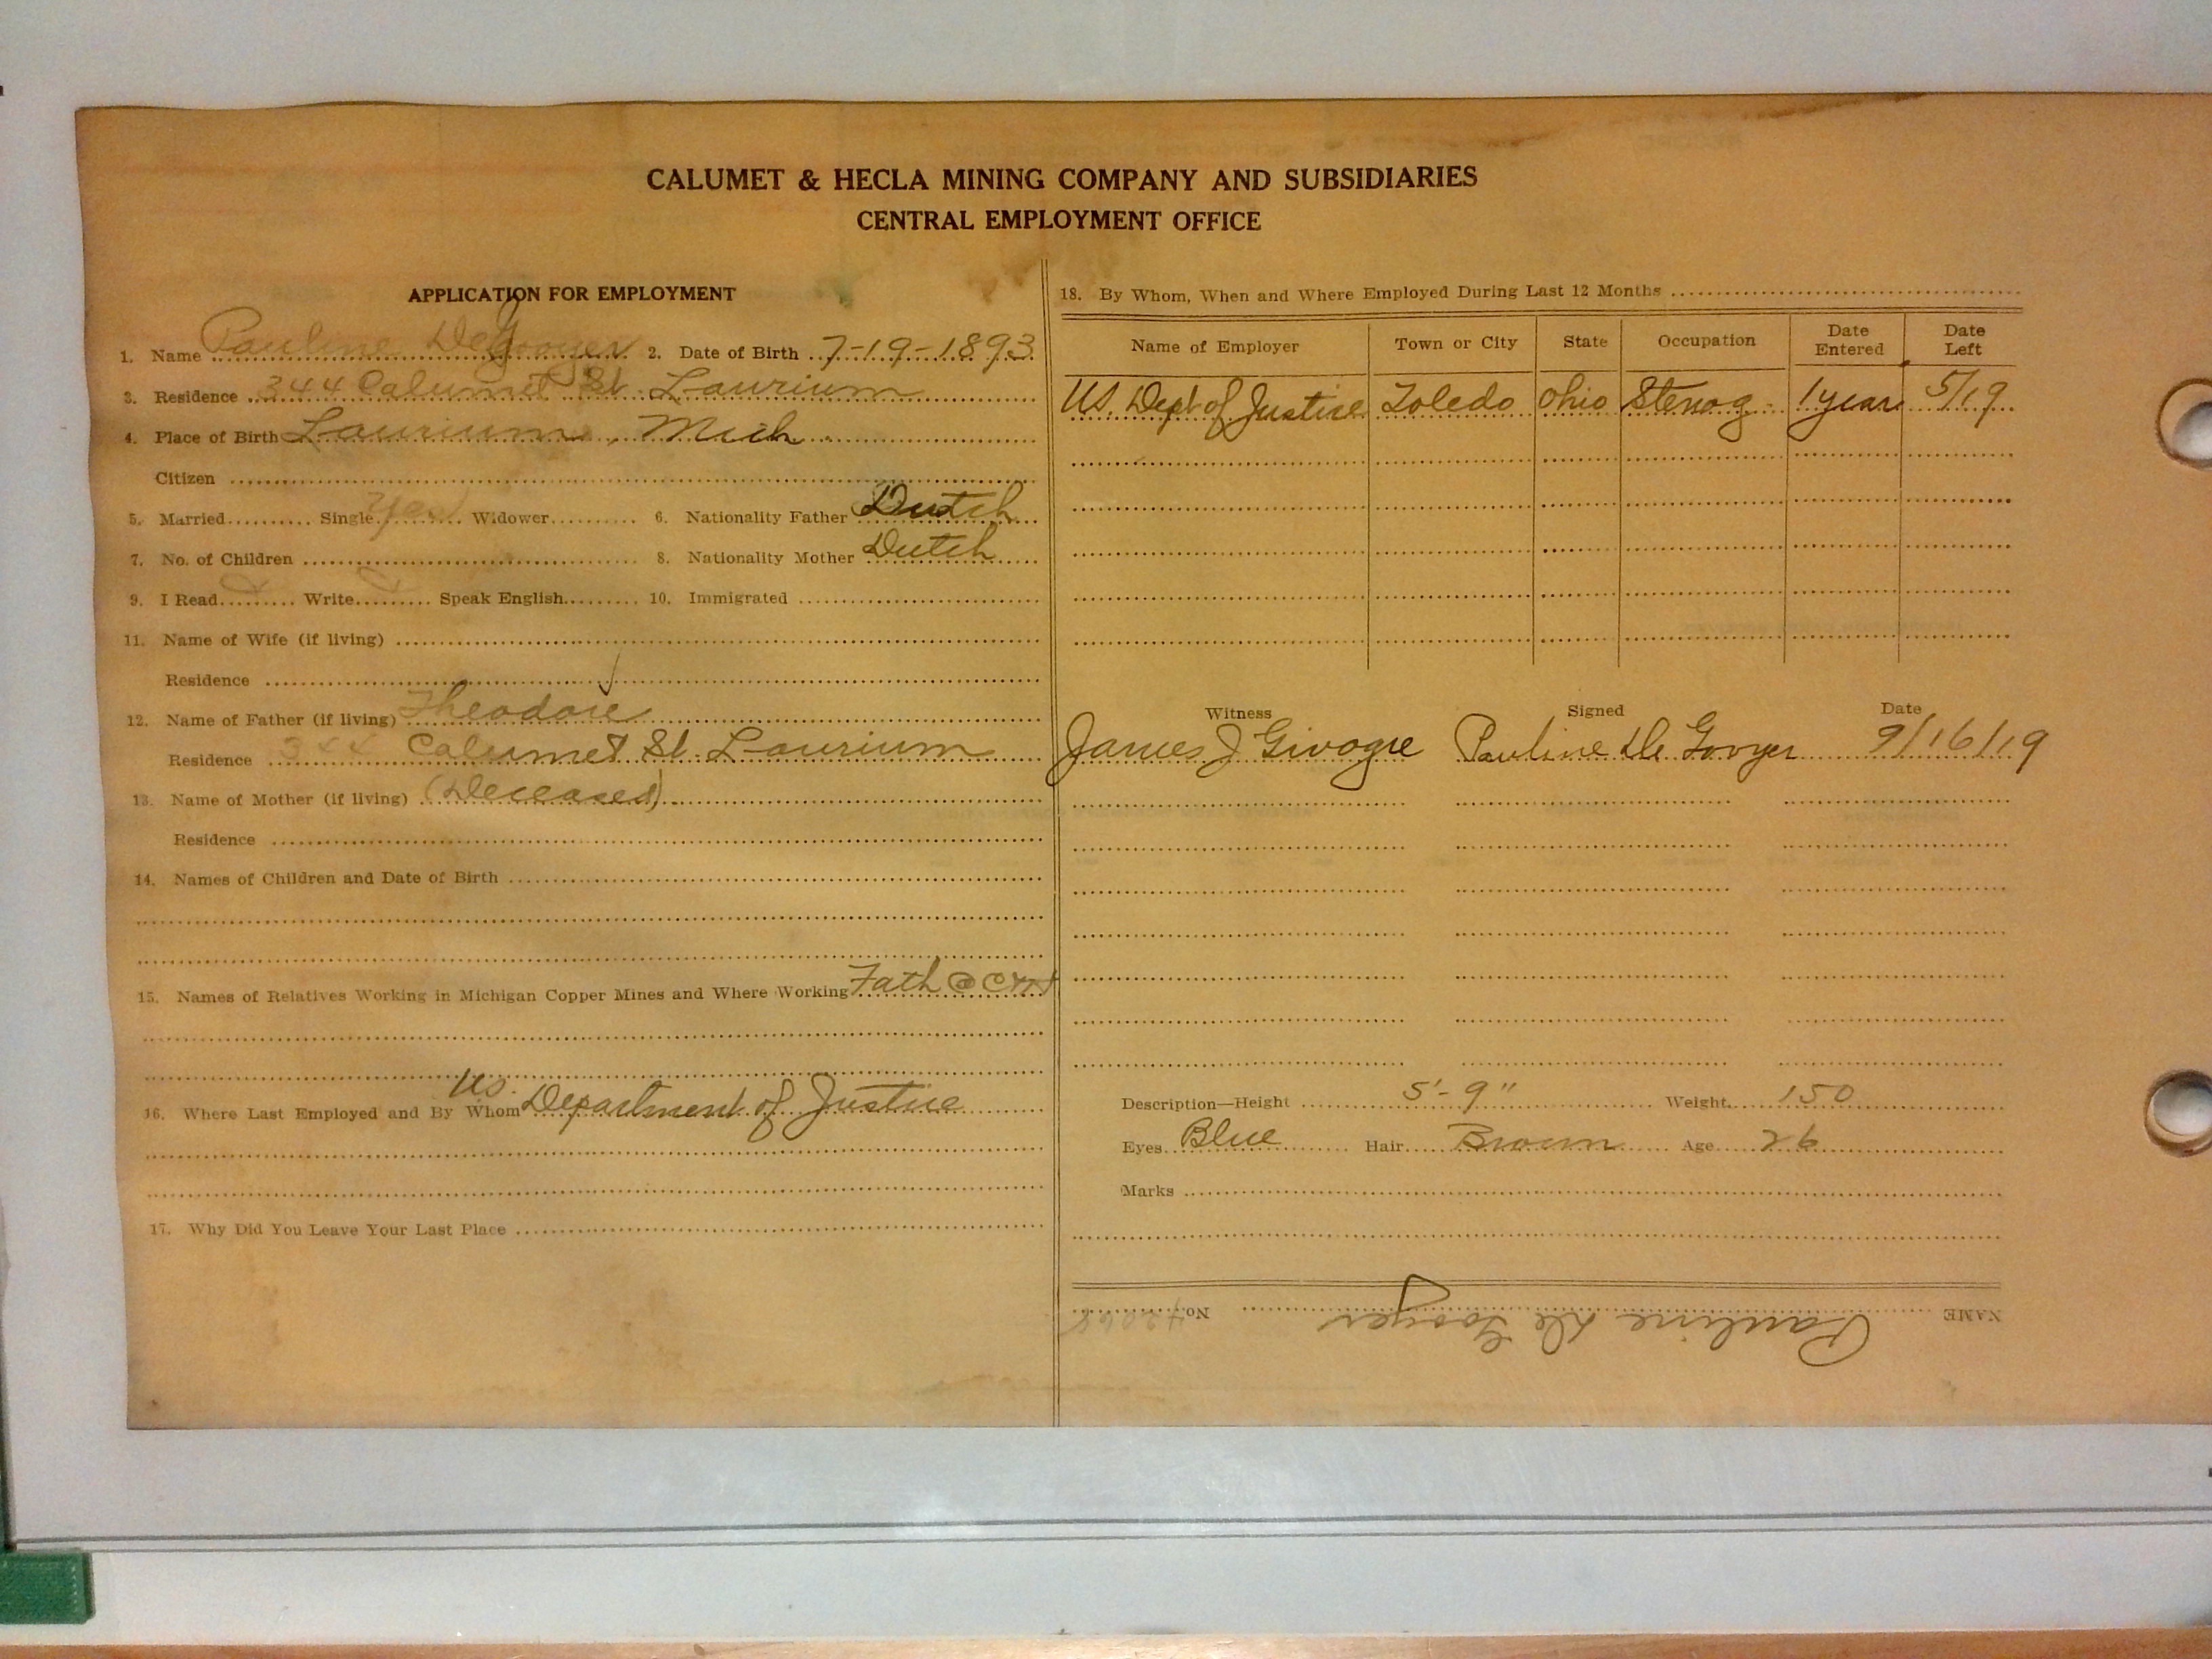 CALUMET & HECLA MINING COMPANY AND SUBSIDIARIES
CENTRAL EMPLOYMENT OFFICE
APPLICATION FOR EMPLOYMENT
1. Name Pauline DeGooyer 2. Date of Birth 7-19-1893
3. Residence 344 Calumet St. Laurium
4. Place of Birth Laurium, Mich.
Citizen
5. Married Single Yes Widower 6. Nationality Father Dutch
7. No. of Children 8. Nationality Mother Dutch
9. I Read Write Speak English 10. Immigrated
11. Name of Wife (if living)
Residence
12. Name of Father (if living) Theodore
Residence 344 Calumet St. Laurium
13. Name of Mother (if living) (Deceased)
Residence
14. Names of Children and Date of Birth
15. Names of Relatives Working in Michigan Copper Mines and Where Working Fath @
16. Where Last Employed and By Whom US. Department of Justice
17. Why Did You Leave Your Last Place
18. By Whom, When and Where Employed During Last 12 Months
Name of Employer Town or City State Occupation Date Entered Date Left
US. Dept of Justice Toledo Ohio Stenog. 1 year 5/19
Witness Signed Date
James J Pauline De Gooyer 9/16/19
Description—Height 5'-9" Weight 150
Eyes Blue Hair Brown Age 26
Marks
NAME Pauline De Gooyer No.